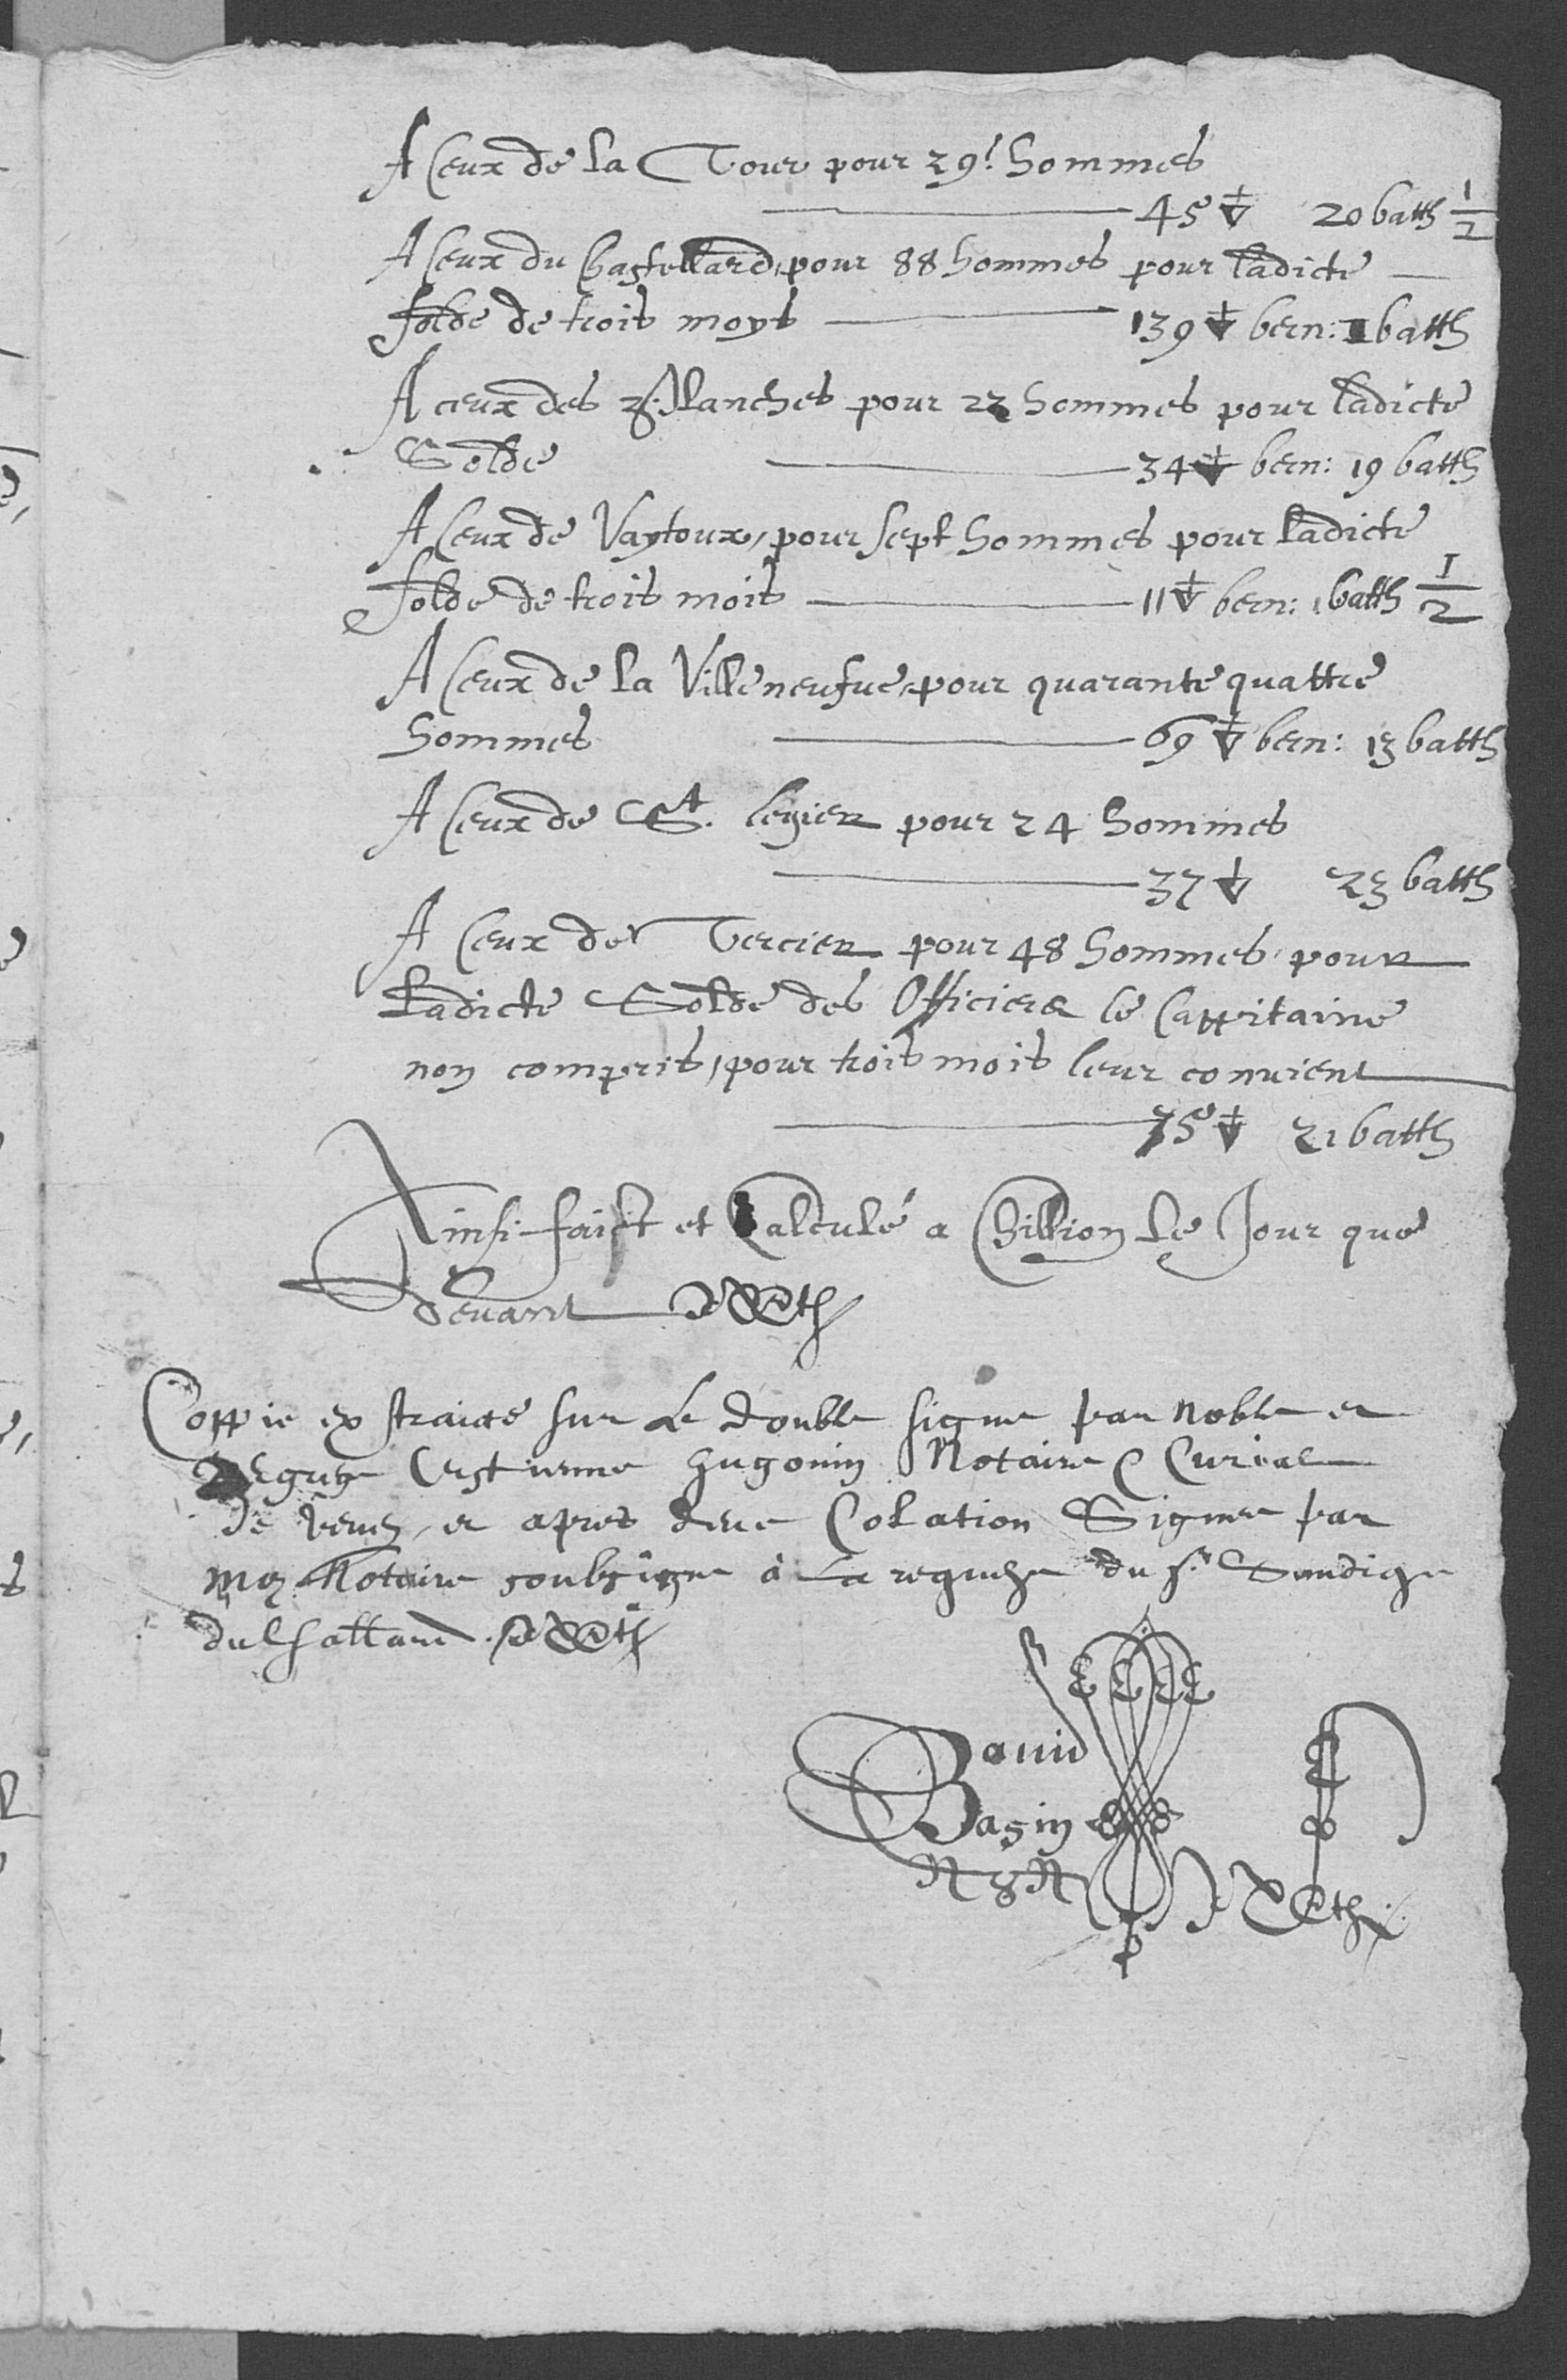 A ceux de la Tour pour 29. hommes
45 ▽ 20 batth 1/2
A ceux du Chastellard, pour 88 hommes pour ladicte
solde de trois moys 139 ▽ bern: 1 batth
A ceux des Planches pour 22 hommes pour ladicte
Solde 34 ▽ bern: 19 batth
A ceux de Vaytoux, pour sept hommes pour ladicte
solde de trois mois 11 ▽ bern: 1 batth 1/2
A ceux de la Villeneufve, pour quarante quattre
hommes 69 ▽ bern: 13 batth
A ceux de St. legier pour 24 hommes
37 ▽ 23 batth
A ceux de Vercier pour 48 hommes, pour
Ladicte Solde des Officiers le Cappitaine
non compris, pour trois mois leur convient
75 ▽ 21 batth
Ainsi faict et Calculé a Chillion Le Jour que
devant
Coppie extraicte sur Le double signe par noble et
Hugonin Notaire & Curial
de Vevey, et apres deue Colation Signee par
moy Notaire soubsigne à La requeste du Sr Sindique
du
David
Basin